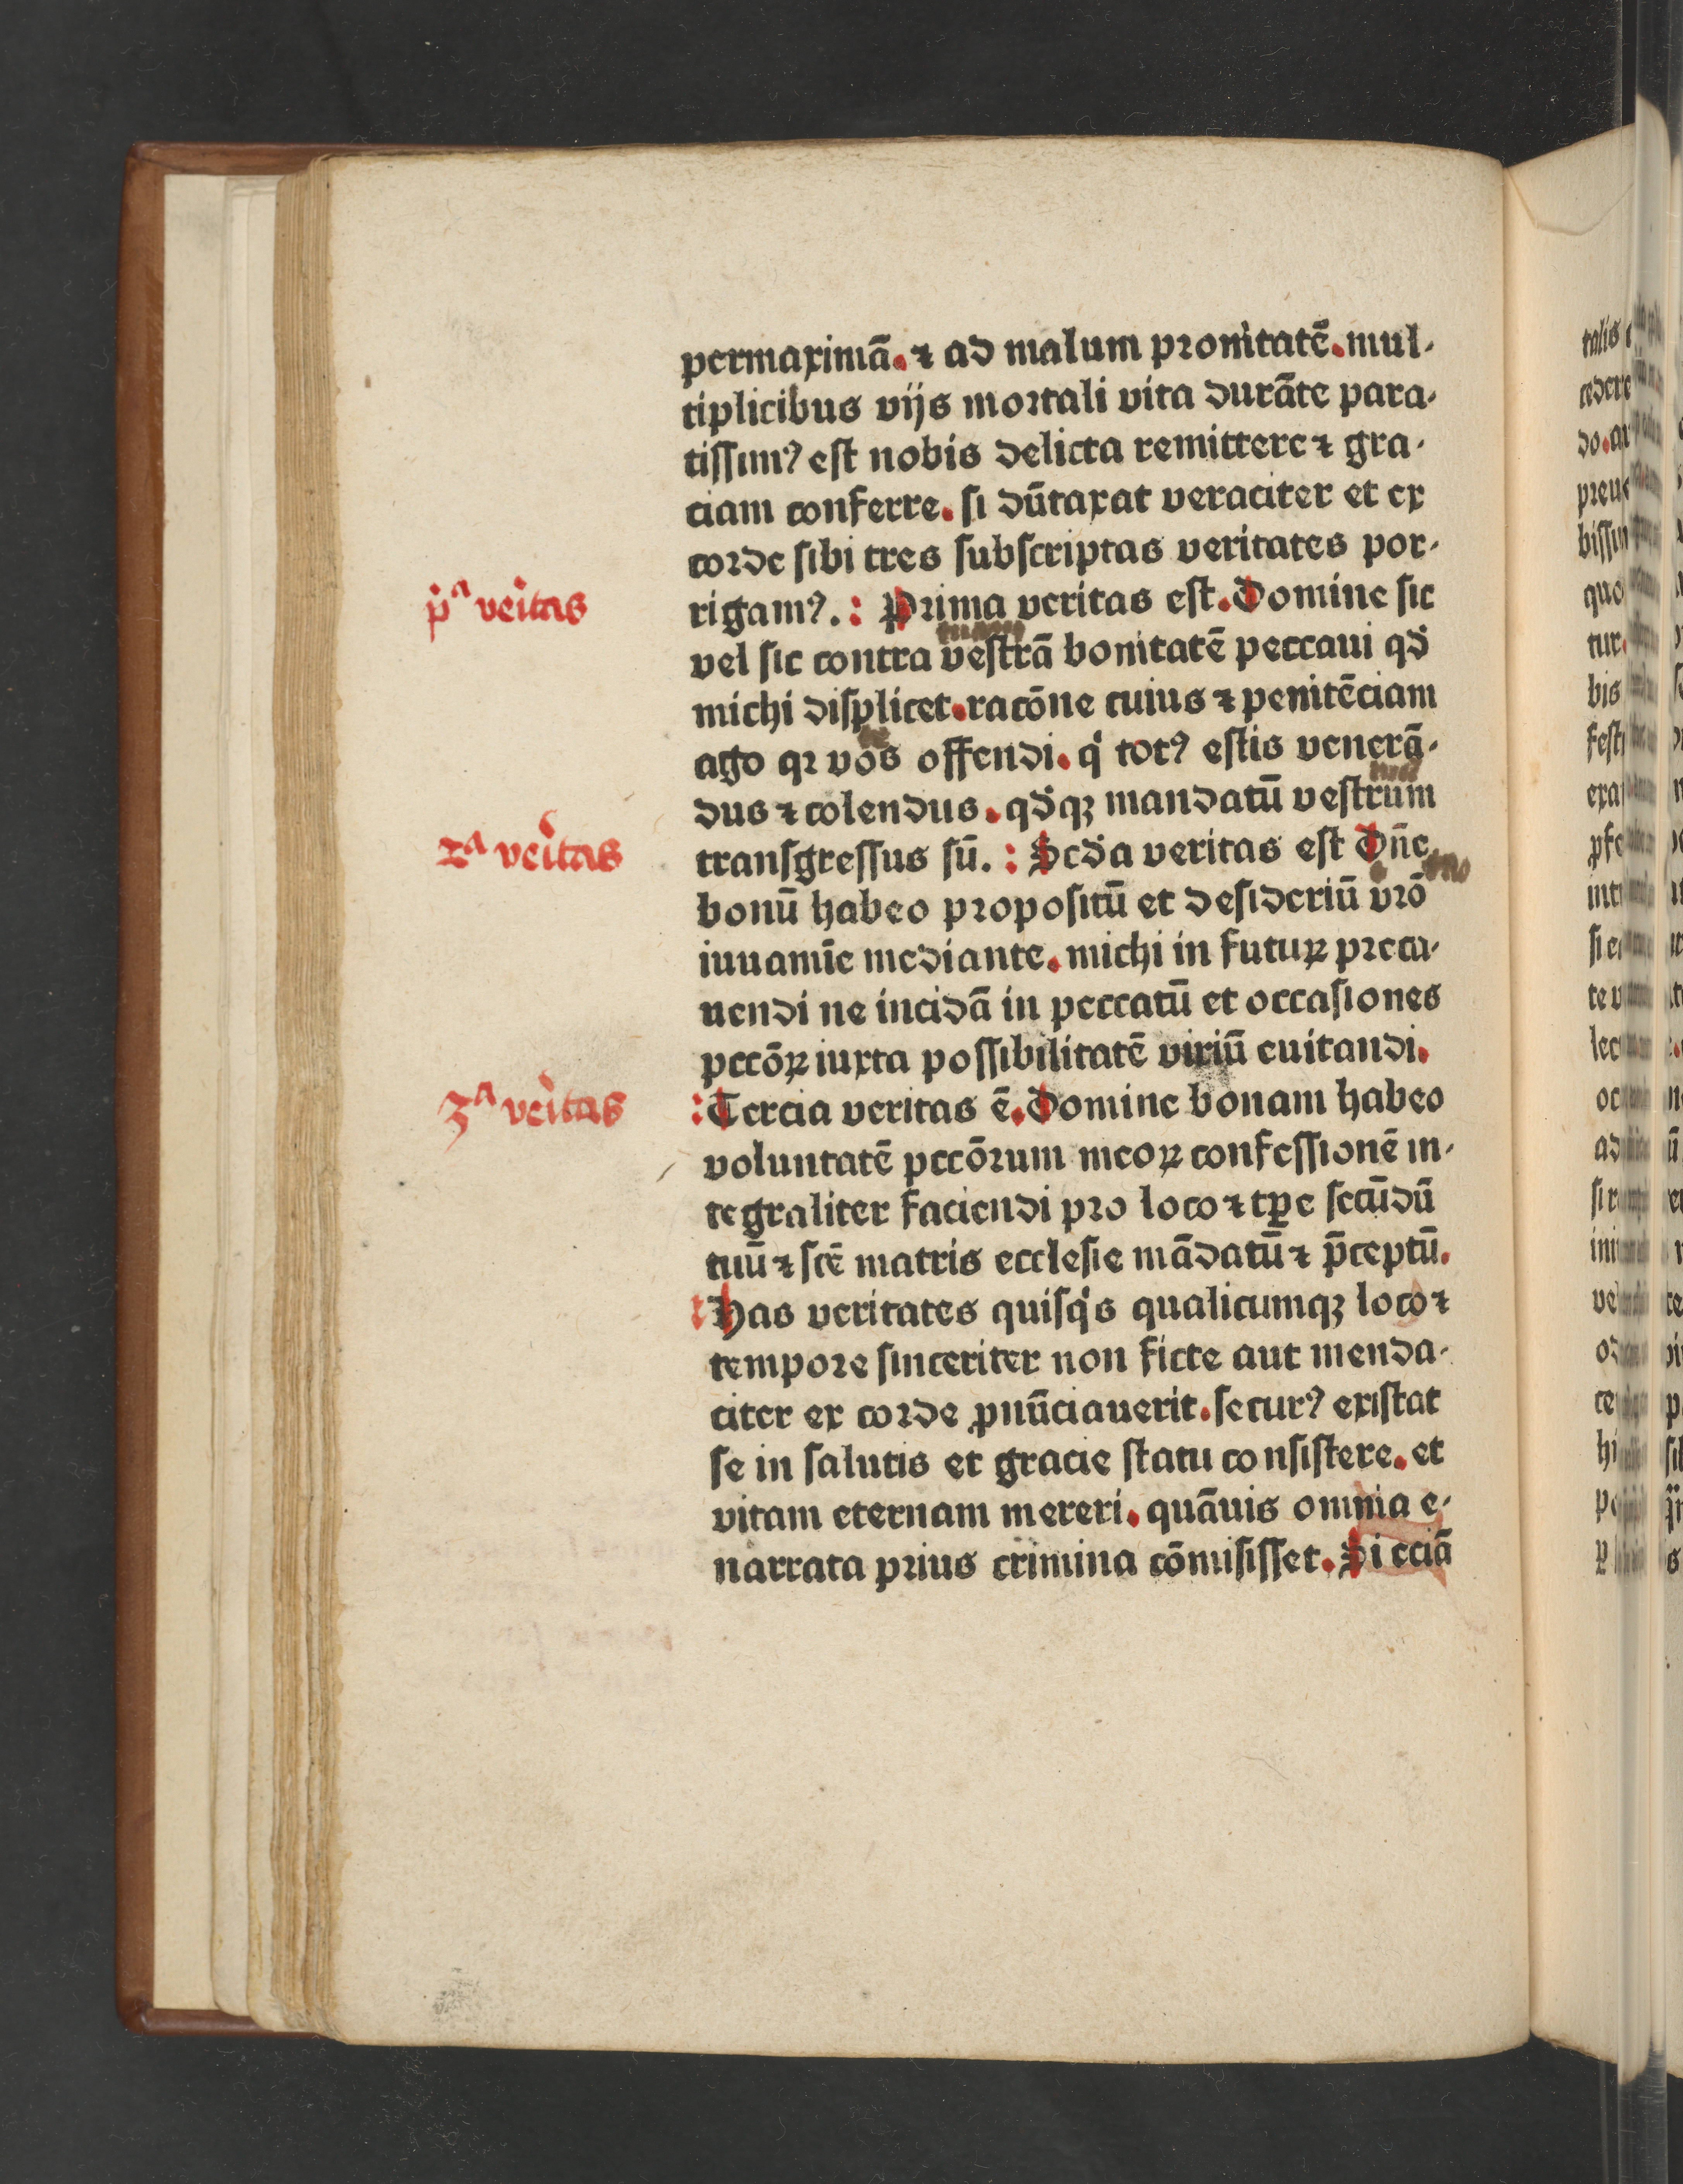 permaximā. ⁊ ad malum pronitatē. mul-
tiplicibus vijs mortali vita durāte para-
tissimꝰ est nobis delicta remittere ⁊ gra-
ciam conferre. si dūtaxat veraciter et ex
corde sibi tres subscriptas veritates por-
pᵃ veritas
rigamꝰ. : Prima veritas est. Domine sic
tuam
vel sic contra vestrā bonitatē peccaui qd̄
michi displicet. racōne cuius ⁊ penitēciam
te
ago qꝛ vos offendi. q̇ totꝰ estis venerā-
dus ⁊ colendus. qd̄qꝫ mandatū vestrum
2ᵃ veritas
transgressus sū. : Scd̄a veritas est Dn̄e
tuo
bonū habeo propositū et desideriū vr̄o
iuuamīe mediante. michi in futuꝝ preca-
uendi ne incidā in peccatū et occasiones
pccōꝝ iuxta possibilitatē viriū euitandi.
3ᵃ veritas
: Tercia veritas ē. Domine bonam habeo
voluntatē pccōrum meoꝝ confessionē in-
tegraliter faciendi pro loco ⁊ tꝑe secūdū
tuū ⁊ scē matris ecclesie mādatū ⁊ p̄ceptū.
Has veritates quisq̇s qualicumqꝫ loco ⁊
tempore sinceriter non ficte aut menda-
citer ex corde ꝓnūciauerit. securꝰ existat
se in salutis et gracie statu consistere. et
vitam eternam mereri. quāuis omnia e-
narrata prius crimina cōmisisset. Si eciā